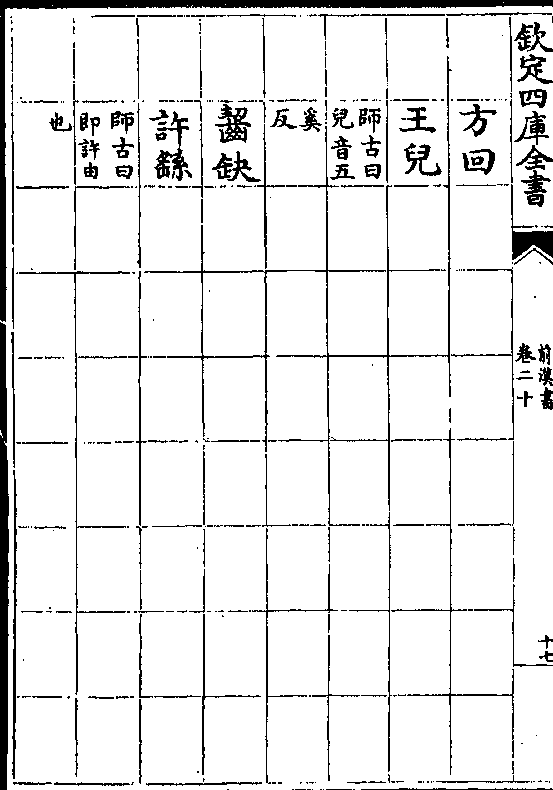 欽定四庫全書
前漢書
卷二十
十七
方回
王兒
師古曰
兒音五
奚
反
齧缺
許繇
師古曰
即許由
也